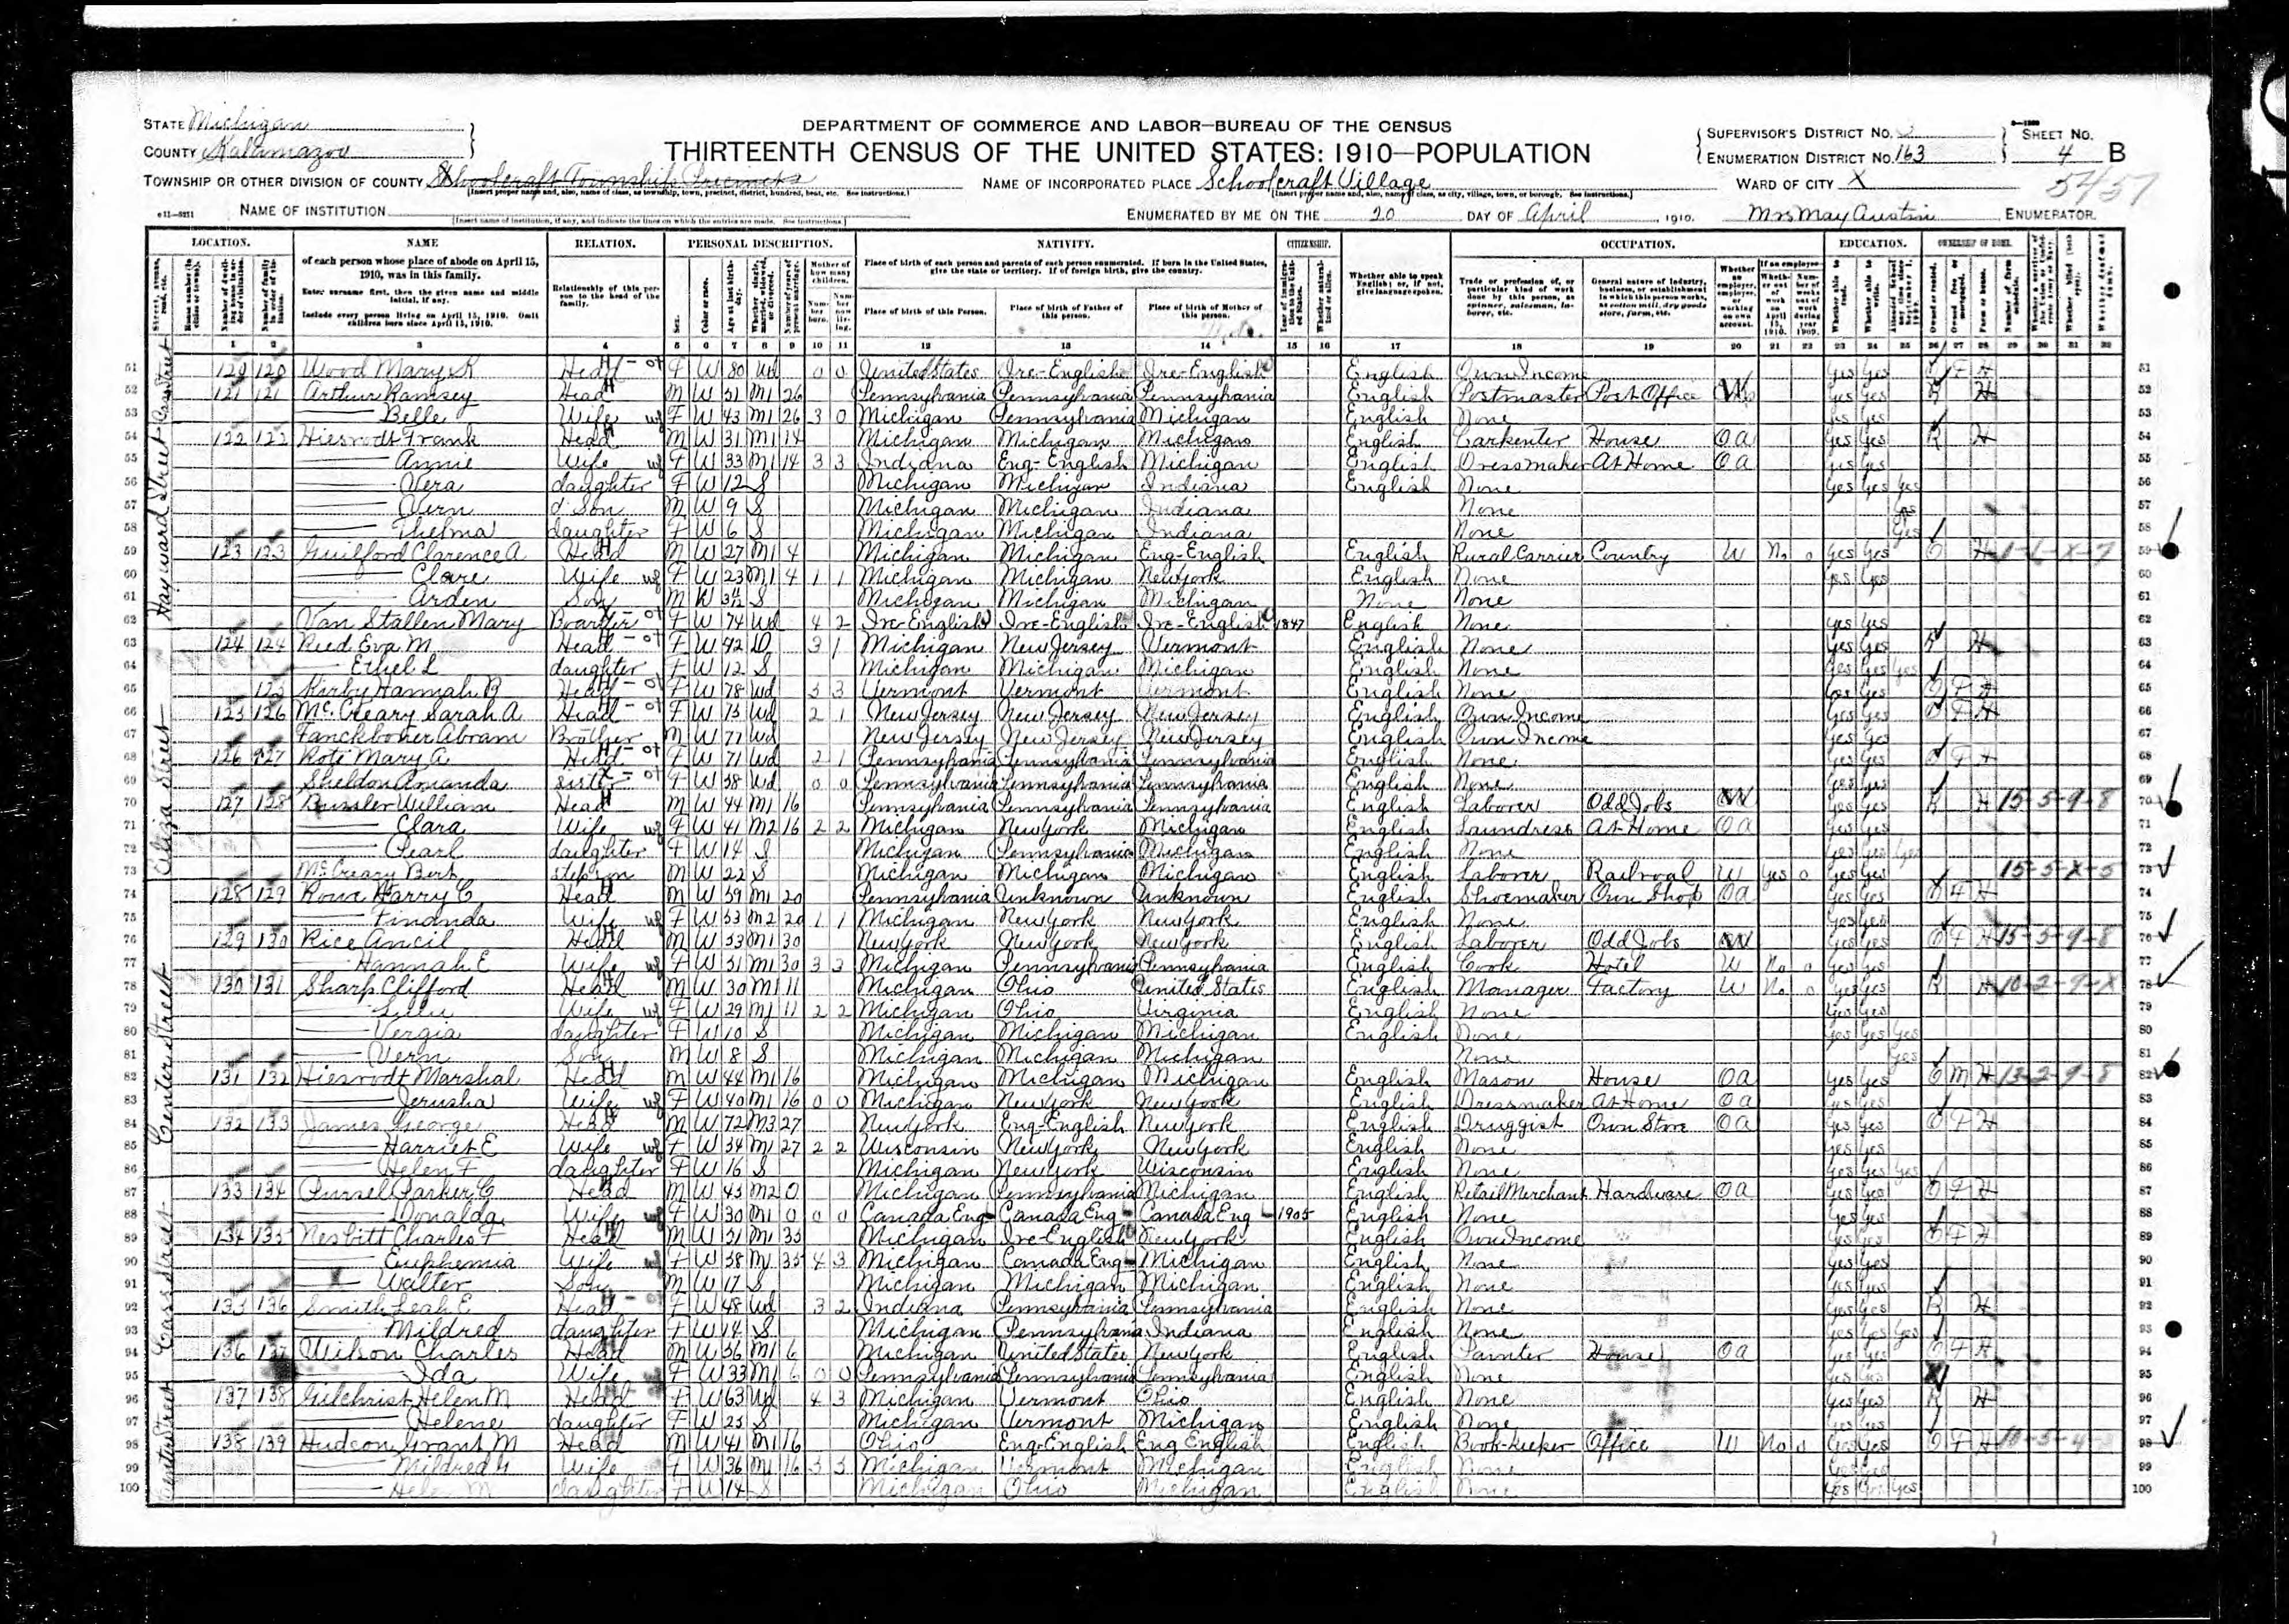 STATE Michigan
COUNTY Kalamazoo
DEPARTMENT OF COMMERCE AND LABOR—BUREAU OF THE CENSUS
THIRTEENTH CENSUS OF THE UNITED STATES: 1910—POPULATION
SUPERVISOR'S DISTRICT NO. SHEET NO.
ENUMERATION DISTRICT NO. 163 4 B
TOWNSHIP OR OTHER DIVISION OF COUNTY Schoolcraft Township NAME OF INCORPORATED PLACE Schoolcraft Village WARD OF CITY X
5457
NAME OF INSTITUTION ENUMERATED BY ME ON THE 20 DAY OF April, 1910. Mrs May Austin ENUMERATOR.
LOCATION. NAME RELATION. PERSONAL DESCRIPTION. NATIVITY. CITIZENSHIP. OCCUPATION. EDUCATION. OWNERSHIP OF HOME.
of each person whose place of abode on April 15, 1910, was in this family.
Enter surname first, then the given name and middle initial, if any.
Include every person living on April 15, 1910. Omit children born since April 15, 1910.
Relationship of this person to the head of the family.
Place of birth of each person and parents of each person enumerated. If born in the United States, give the state or territory. If of foreign birth, give the country.
Place of birth of this Person. Place of birth of Father of this person. Place of birth of Mother of this person.
Whether able to speak English; or, if not, give language spoken.
1 2 3 4 5 6 7 8 9 10 11 12 13 14 15 16 17 18 19 20 21 22 23 24 25 26 27 28 29 30 31 32
51 120 120 Wood Mary K Head F W 80 Wd 0 0 United States Ire-English Ire-English English Own Income Yes Yes O F H 51
52 121 121 Arthur Ramsey Head M W 51 M1 26 Pennsylvania Pennsylvania Pennsylvania English Postmaster Post Office W Yes Yes R H 52
53 Belle Wife F W 43 M1 26 3 0 Michigan Pennsylvania Michigan English None Yes Yes 53
54 122 122 Hiesrodt Frank Head M W 31 M1 14 Michigan Michigan Michigan English Carpenter House OA Yes Yes R H 54
55 Annie Wife F W 33 M1 14 3 3 Indiana Eng-English Michigan English Dressmaker At Home OA Yes Yes 55
56 Vera daughter F W 12 S Michigan Michigan Indiana English None Yes Yes Yes 56
57 Vern Son M W 9 S Michigan Michigan Indiana None Yes 57
58 Thelma daughter F W 6 S Michigan Michigan Indiana None Yes 58
59 123 123 Guilford Clarence A Head M W 27 M1 4 Michigan Michigan Eng-English English Rural Carrier Country W No 0 Yes Yes O H 1-1-X-7 59
60 Clare Wife F W 23 M1 4 1 1 Michigan Michigan New York English None Yes Yes 60
61 Arden Son M W S Michigan Michigan Michigan None None 61
62 Van Stallen Mary Boarder F W 74 Wd 4 2 Ire-English Ire-English Ire-English 1847 English None Yes Yes 62
63 124 124 Reed Eva M Head F W 42 D 3 1 Michigan New Jersey Vermont English None Yes Yes R H 63
64 Ethel L daughter F W 12 S Michigan Michigan Michigan English None Yes Yes Yes 64
65 Kirby Hannah B Head F W 78 Wd 3 3 Vermont Vermont Vermont English None Yes Yes O F H 65
66 125 126 McCreary Sarah A Head F W 75 Wd 2 1 New Jersey New Jersey New Jersey English Own Income Yes Yes O F H 66
67 Fanckboner Abram Brother M W 77 Wd New Jersey New Jersey New Jersey English Own Income Yes Yes 67
68 126 127 Rote Mary A Head F W 71 Wd 2 1 Pennsylvania Pennsylvania Pennsylvania English None Yes Yes O F H 68
69 Sheldon Amanda Sister F W 58 Wd 0 0 Pennsylvania Pennsylvania Pennsylvania English None Yes Yes 69
70 127 128 Bussler William Head M W 44 M1 16 Pennsylvania Pennsylvania Pennsylvania English Laborer Odd Jobs W Yes Yes R H 15-5-9-8 70
71 Clara Wife F W 41 M2 16 2 2 Michigan New York Michigan English Laundress At Home OA Yes Yes 71
72 Pearl daughter F W 14 S Michigan Pennsylvania Michigan English None Yes Yes Yes 72
73 McCreary Bert stepson M W 22 S Michigan Michigan Michigan English Laborer Railroad W Yes 0 Yes Yes 15-5-X-5 73
74 128 129 Rowe Harry C Head M W 59 M1 20 Pennsylvania Unknown Unknown English Shoemaker Own Shop OA Yes Yes O F H 74
75 Finanda Wife F W 53 M2 20 1 1 Michigan New York New York English None Yes Yes 75
76 129 130 Rice Ancil Head M W 53 M1 30 New York New York New York English Laborer Odd Jobs W Yes Yes O F H 15-5-9-8 76
77 Hannah E Wife F W 51 M1 30 3 3 Michigan Pennsylvania Pennsylvania English Cook Hotel W No 0 Yes Yes 77
78 130 131 Sharp Clifford Head M W 30 M1 11 Michigan Ohio United States English Manager Factory W No 0 Yes Yes R H 10-2-9-X 78
79 Wife F W 29 M1 11 2 2 Michigan Ohio Virginia English None Yes Yes 79
80 Vergia daughter F W 10 S Michigan Michigan Michigan English None Yes Yes Yes 80
81 Vern Son M W 8 S Michigan Michigan Michigan None Yes 81
82 131 132 Hiesrodt Marshal Head M W 44 M1 16 Michigan Michigan Michigan English Mason House OA Yes Yes O M H 13-2-9-8 82
83 Jerusha Wife F W 40 M1 16 0 0 Michigan New York New York English Dressmaker At Home OA Yes Yes 83
84 132 133 James George Head M W 72 M3 27 New York Eng-English New York English Druggist Own Store OA Yes Yes O F H 84
85 Harriet E Wife F W 54 M1 27 2 2 Wisconsin New York New York English None Yes Yes 85
86 Helen F daughter F W 16 S Michigan New York Wisconsin English None Yes Yes Yes 86
87 133 134 Pursel Parker C Head M W 45 M2 0 Michigan Pennsylvania Michigan English Retail Merchant Hardware OA Yes Yes O F H 87
88 Donalda Wife F W 30 M1 0 0 0 Canada Eng Canada Eng Canada Eng 1905 English None Yes Yes 88
89 134 135 Nesbitt Charles F Head M W 51 M1 35 Michigan Ire-English New York English Own Income Yes Yes O F H 89
90 Euphemia Wife F W 58 M1 35 4 3 Michigan Canada Eng Michigan English None Yes Yes 90
91 Walter Son M W 17 S Michigan Michigan Michigan English None Yes Yes 91
92 135 136 Smith Leah E Head F W 48 Wd 3 2 Indiana Pennsylvania Pennsylvania English None Yes Yes R H 92
93 Mildred daughter F W 14 S Michigan Pennsylvania Indiana English None Yes Yes Yes 93
94 136 137 Wilson Charles Head M W 36 M1 6 Michigan United States New York English Painter House OA Yes Yes O F H 94
95 Ida Wife F W 33 M1 6 0 0 Pennsylvania Pennsylvania Pennsylvania English None Yes Yes 95
96 137 138 Gilchrist Helen M Head F W 63 Wd 4 3 Michigan Vermont Ohio English None Yes Yes R H 96
97 Helene daughter F W 25 S Michigan Vermont Michigan English None Yes Yes 97
98 138 139 Hudson Grant M Head M W 41 M1 16 Ohio Eng-English Eng English English Book-keeper Office W No 0 Yes Yes O F H 98
99 Mildred Wife F W 36 M1 16 3 3 Michigan Vermont Michigan English None Yes Yes 99
100 Helen M daughter F W 14 S Michigan Ohio Michigan English None Yes Yes Yes 100
Hayward Street
Eliza Street
Center Street
Cass Street